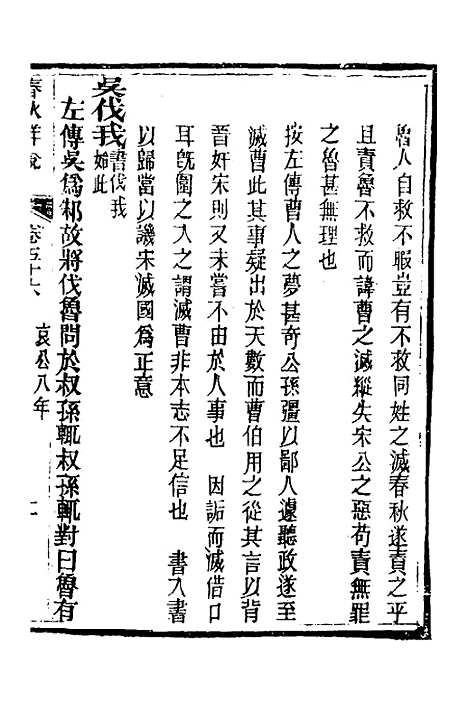 魯人自救不暇豈有不救同姓之滅春秋遂責之乎
且責魯不救而諱曹之滅縱失宋公之惡苟責無罪
之魯甚無理也
按左傳曹人之夢甚奇公孫彊以鄙人遽聽政遂至
滅曹此其事疑出於天數而曹伯用之從其言以背
晉奸宋則又未嘗不由於人事也 因詬而滅借口
耳既圍之入之謂滅曹非本志不足信也 書入書
以歸當以譏宋滅國為正意
吳伐我書伐我始此
左傳吳為邾故將伐魯問於叔孫輒叔孫輒對曰魯有
春秋詳說 卷五十六 哀公八年